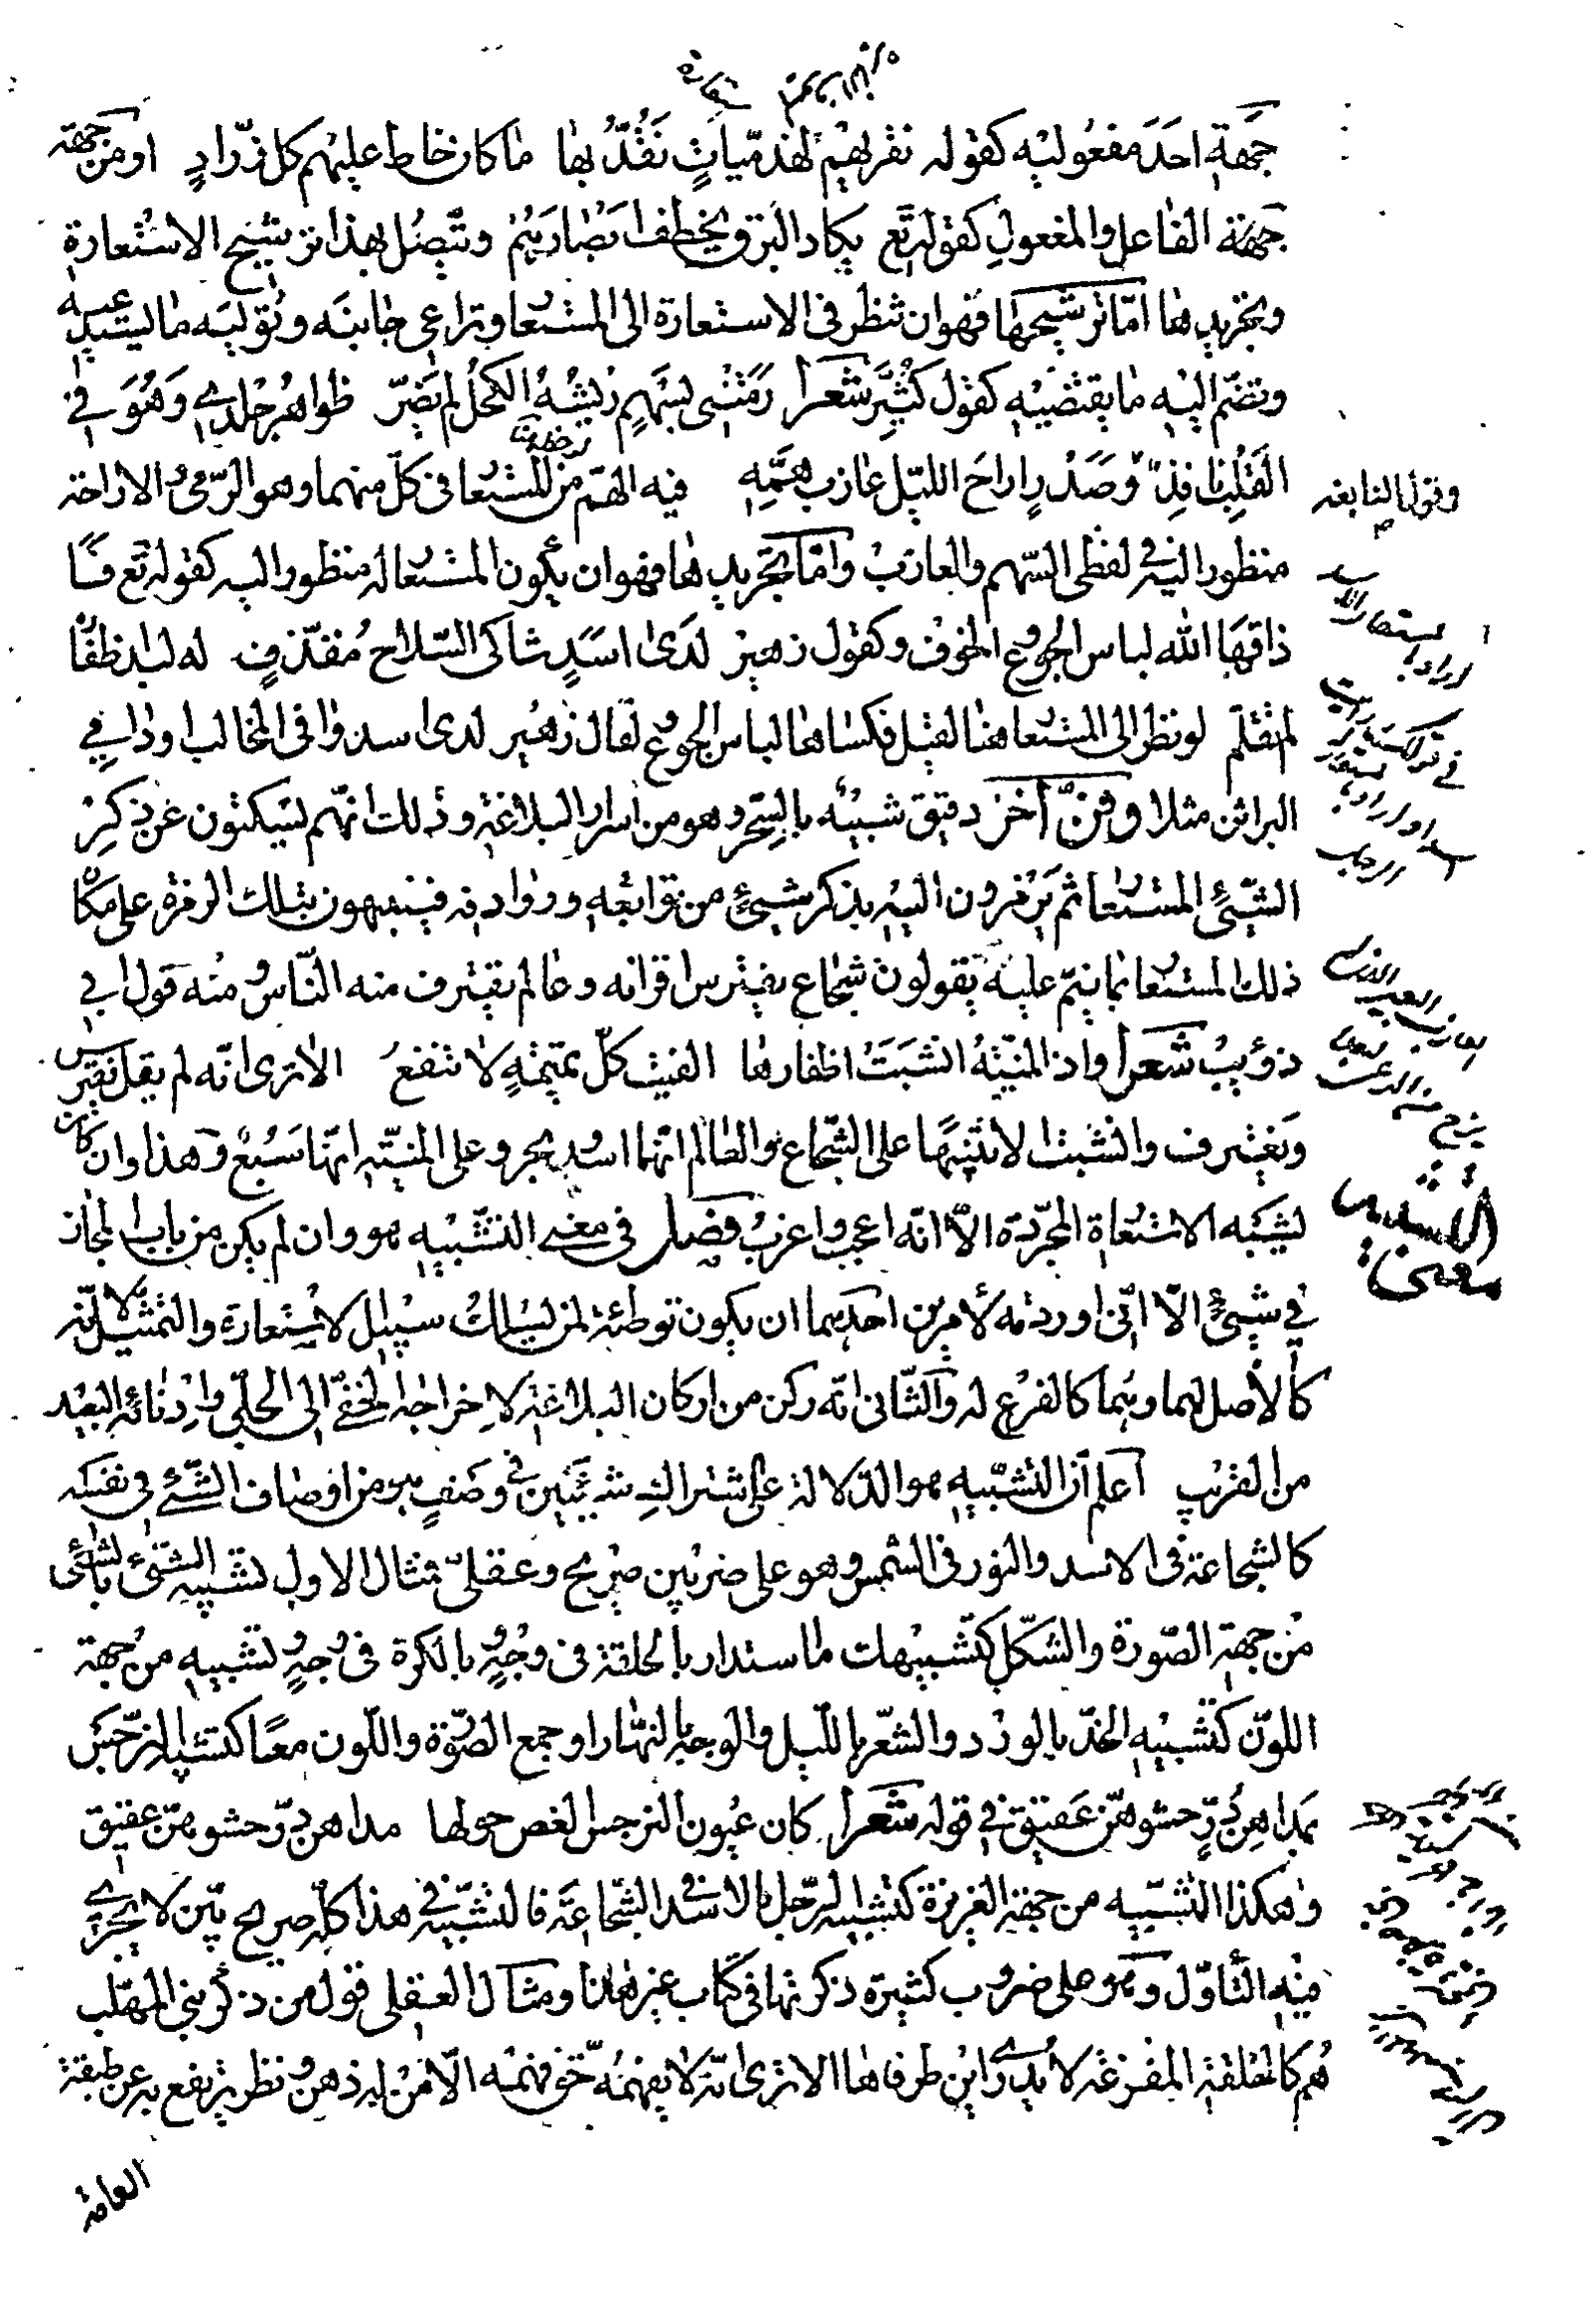 جهة احد مفعوليه كقوله نقريهم لهذميات نقد بها ما كان خاط عليهم كل زراد او من جهة
جهة الفاعل والمفعول كقوله تع يكاد البرق يخطف ابصارهم ويتصل بهذا ترشيح الاستعارة
وتجريدها اما ترشيحها فهو ان تنظر في الاستعارة الى المستعار وتراعى جانبه وتوليه ما يستدعيه
وتضم اليه ما يقتضيه كقول كثير شعرا رمتني بسهم ريشه الكحل لم يضر ظواهر جلدي وهو في
القلب نافذ وصدر اراح الليل عازب همه فيه الهم من المستعار في كل منهما وهو الرمي والاراحة
وقول النابغه
منظور اليه في لفظي السهم والعازب واما تجريدها فهو ان يكون المستعار له منظورا اليه كقوله تع فا
ذاقها الله لباس الجوع والخوف وكقول زهير لدى اسد شاكي السلاح مقذف له لبد اظفا
لم تقلم لو نظر الى المستعار هنا لقيل فكساها لباس الجوع لقال زهير لدى اسد وافي المخالب او دامي
البراثن مثلا وفن آخر دقيق شبيه بالسحر وهو من اسرار البلاغة وذلك انهم يسكتون عن ذكر
الشيئ المستعار ثم يرمزون اليه بذكر شيئ من توابعه وروادفه فينبهون بتلك الرمزة على مكا
ذلك المستعار بما ينم عليه يقولون شجاع يفترس اقرانه وعالم يغترف منه الناس ومنه قول ابي
ذؤيب شعرا واذا المنية انشبت اظفارها الفيت كل تميمة لا تنفع الا ترى انه لم يقل تفترس
وتغترف وانشبت الا تنبيها على الشجاع والعالم انهما اسد وبحر وعلى المنية انها سبع وهذا وان كان
يشبه الاستعارة المجردة الا انه اعجب واغرب فصل في معنى التشبيه هو وان لم يكن من باب المجاز
معنى التشبيه
في شيئ الا اني اوردته لأمرين احدهما ان يكون توطئة لمن يسلك سبيل الاستعارة والتمثيل لانه
كالأصل لهما وهما كالفرع له والثاني انه ركن من اركان البلاغة لاخراجه الخفي الى الجلي وادنائه البعيد
من القريب اعلم أن التشبيه هو الدلالة على اشتراك شيئين في وصف هو من اوصاف الشيئ في نفسه
كالشجاعة في الاسد والنور في الشمس وهو على ضربين صريح وعقلي مثال الاول تشبيه الشيئ بالشيئ
من جهة الصورة والشكل كتشبيهك ما استدار بالحلقة في وجه وبالكرة في وجه وتشبيه من جهة
اللون كتشبيه الخد بالورد والشعر بالليل والوجه بالنهار او جمع الصورة واللون معا كتشبيه النرجس
بمداهن در حشوهن عقيق في قوله شعرا كان عيون النرجس الغض حولها مداهن در حشوهن عقيق
وهكذا التشبيه من جهة الغريزة كتشبيه الرجل بالاسد في الشجاعة فالتشبيه في هذا كله صريح بين لا يجرى
فيه التأول وهو على ضروب كثيرة ذكرتها في كتاب غير هذا ومثال العقلي قول من ذكر بني المهلب
هم كالحلقة المفرغة لا يدرى اين طرفاها الا ترى انه لا يفهمه حق فهمه الا من له ذهن ونظر يرتفع به عن طبقة
العامة